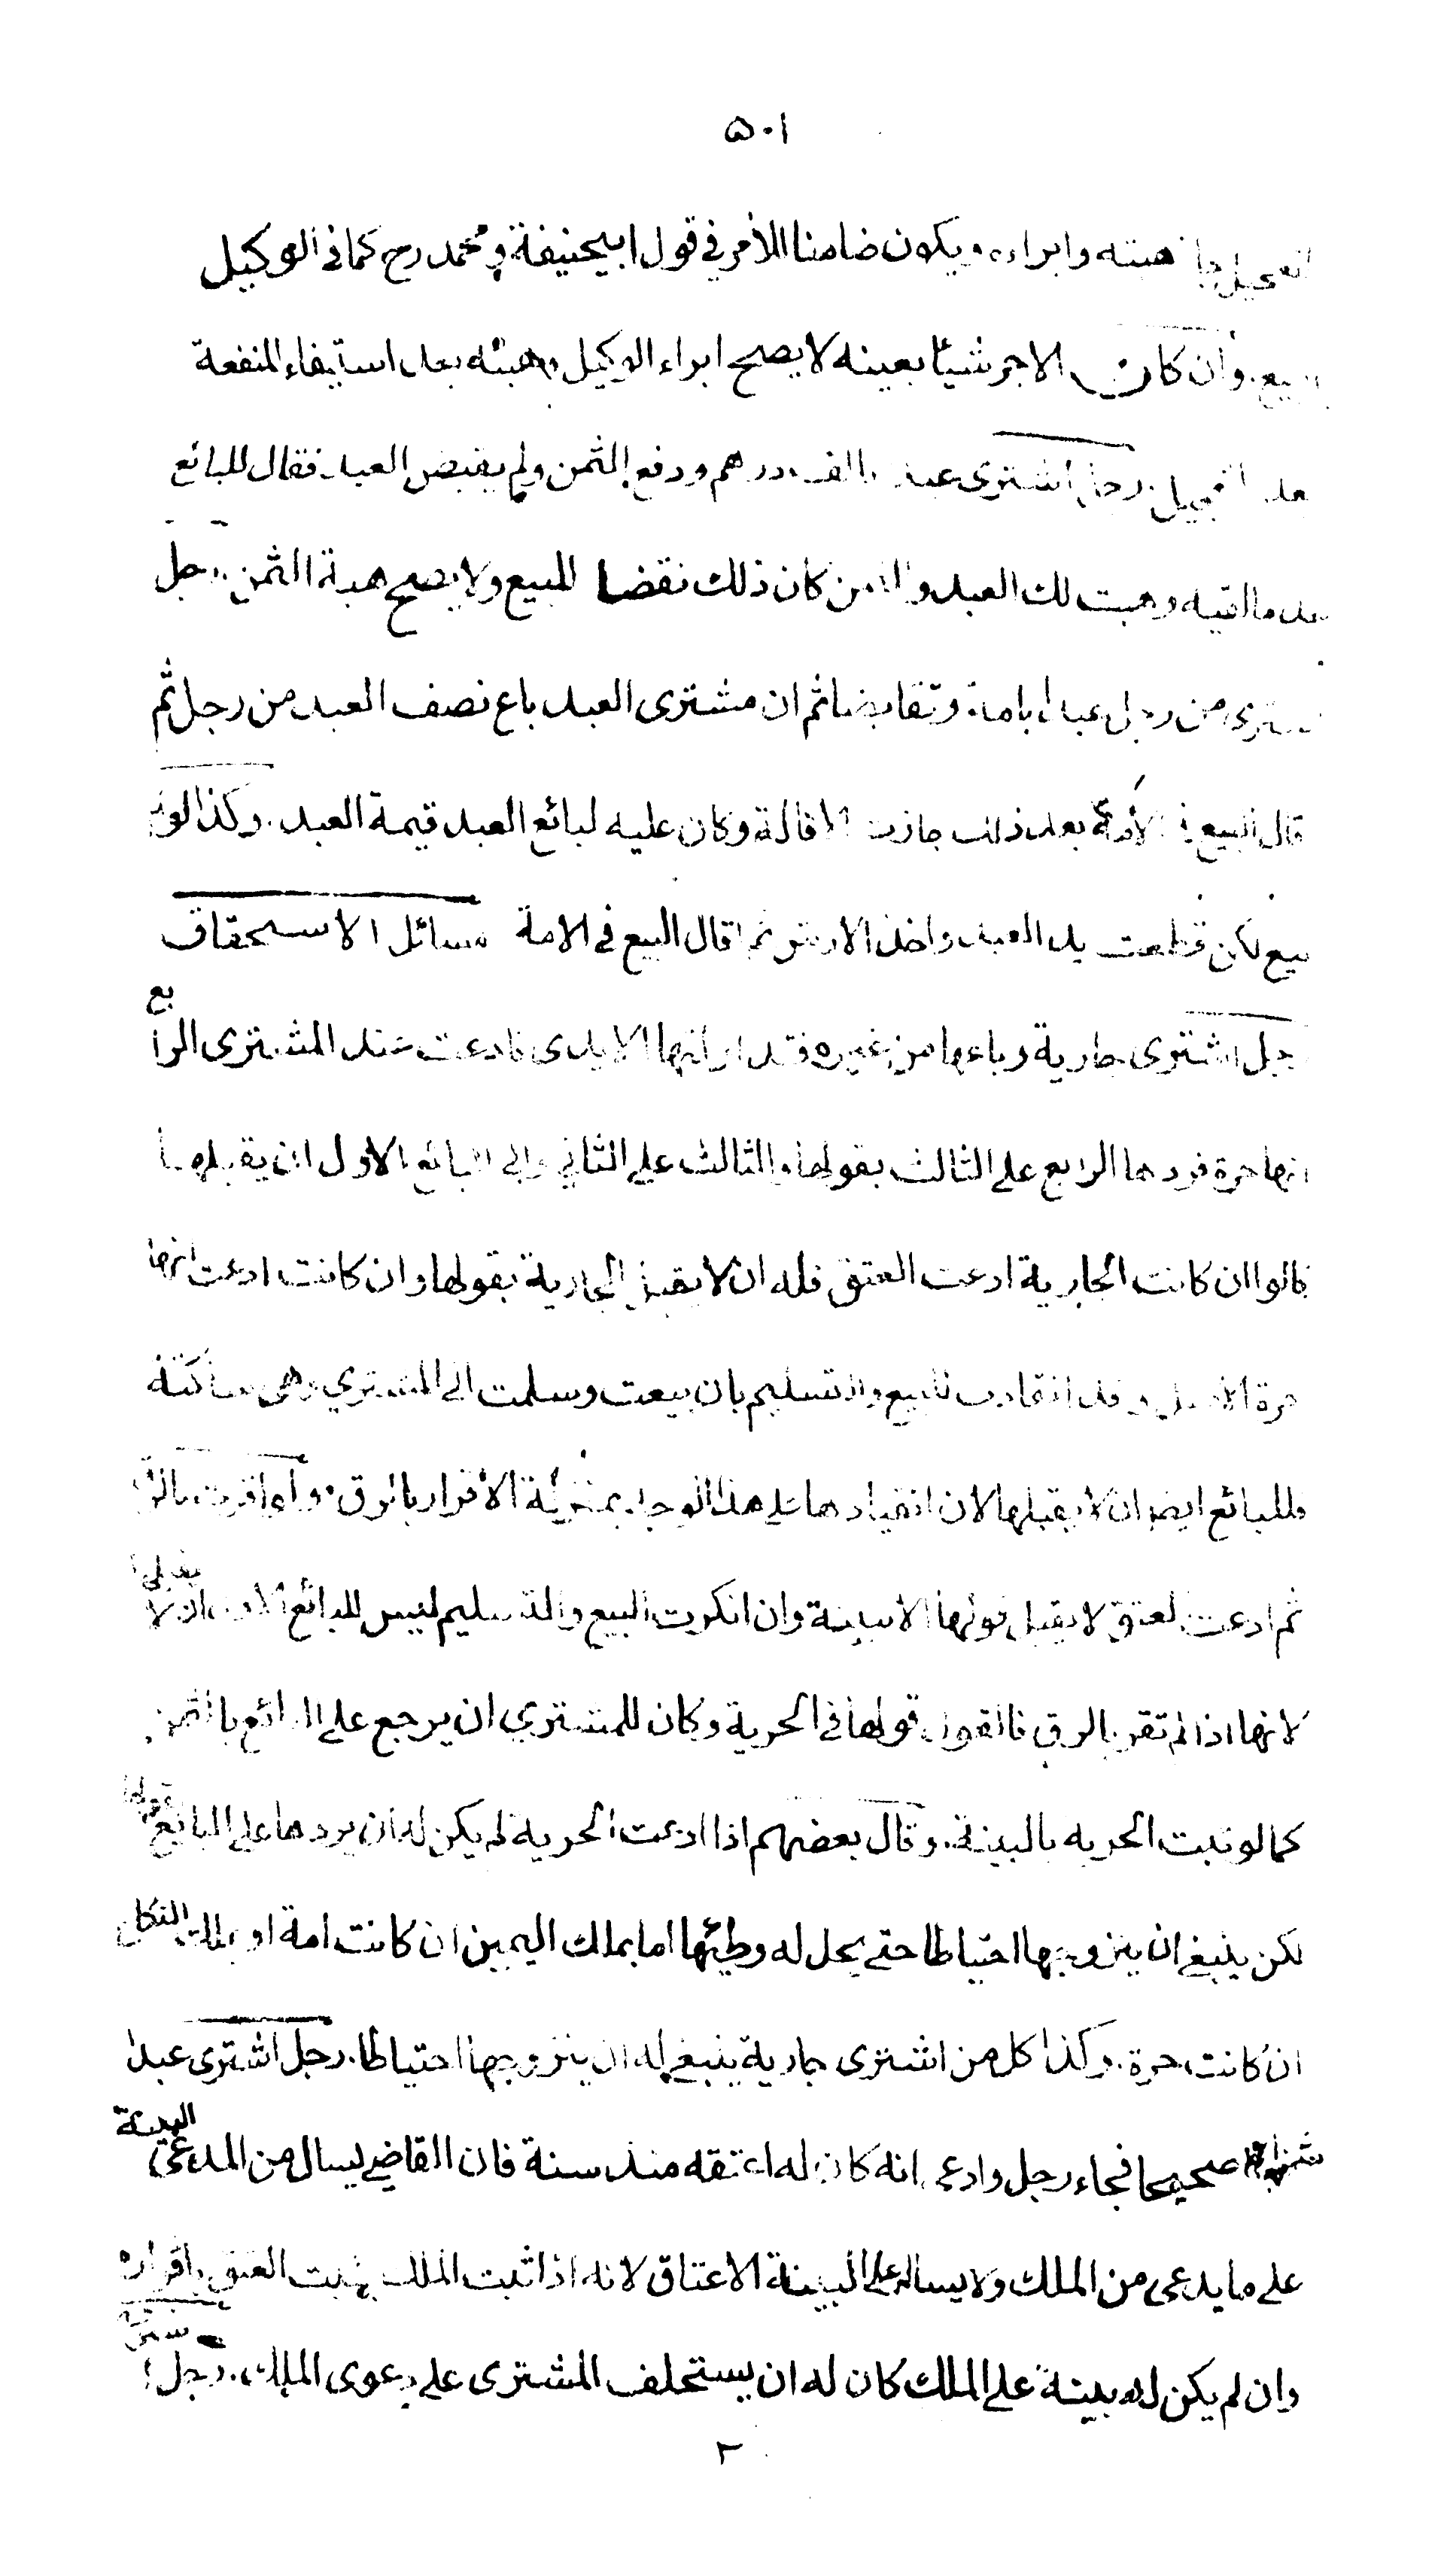 ٥٠١
هبته وابراءه ويكون ضامنا للأمر في قول ابيحنيفة ومحمد رح كما في الوكيل
وان كان الاجر شيئا بعينه لا يصح ابراء الوكيل وهبته بعد استيفاء المنفعة
رجل اشترى عبدا بالف درهم ودفع الثمن ولم يقبض العبد فقال للبائع
وهبت لك العبد والثمن كان ذلك نقضا للبيع ولا يصح هبة الثمن . رجل
اشترى من رجل عبدا بامة وتقابضا ثم ان مشترى العبد باع نصف العبد من رجل ثم
قال البيع في الأمة بعد ذلك جازت الاقالة وكان عليه لبائع العبد قيمة العبد . وكذا لو
يبع لكن قطعت يد العبد واخذ الارش ثم اقال البيع في الامة مسائل الاستحقاق
رجل اشترى جارية وباعها من غيره فتداولتها الايدى فادعت عند المشترى الرابع
انها حرة فردها الرابع على الثالث بقولها والثالث على الثاني وابى البائع الاول ان يقبلها
قالوا ان كانت الجارية ادعت العتق فله ان لا يقبل الجارية بقولها وان كانت ادعت انها
حرة الاصل وقد انقادت للبيع والتسليم بان بيعت وسلمت الى المشتري وهى ساكتة
فللبائع ايضا ان لا يقبلها لان انقيادها على هذا الوجه بمنزلة الاقرار بالرق . ولو اقرت بالرق
ثم ادعت العتق لا يقبل قولها الا ببينة وان انكرت البيع والتسليم ليس للبائع الاول ان لا يقبلها
لانها اذا لم تقر بالرق فالقول قولها في الحرية وكان للمشتري ان يرجع على البائع بالثمن
كما لو ثبت الحرية بالبينة . وقال بعضهم اذا ادعت الحرية لم يكن له ان يردها على البائع بقولها
لكن ينبغي ان يتزوجها احتياطا حتى يحل له وطيها اما بملك اليمين ان كانت امة او بملك النكاح
ان كانت حرة . وكذا كل من اشترى جارية ينبغي له ان يتزوجها احتياطا . رجل اشترى عبدا
صحيحا فجاء رجل وادعى انه كان له اعتقه منذ سنة فان القاضي يسال من المدعي البينة
على ما يدعى من الملك ولا يساله على البينة الاعتاق لانه اذا ثبت الملك يثبت العتق باقراره
وان لم يكن له بينة على الملك كان له ان يستحلف المشترى على دعوى الملك . رجل اشترى
٢